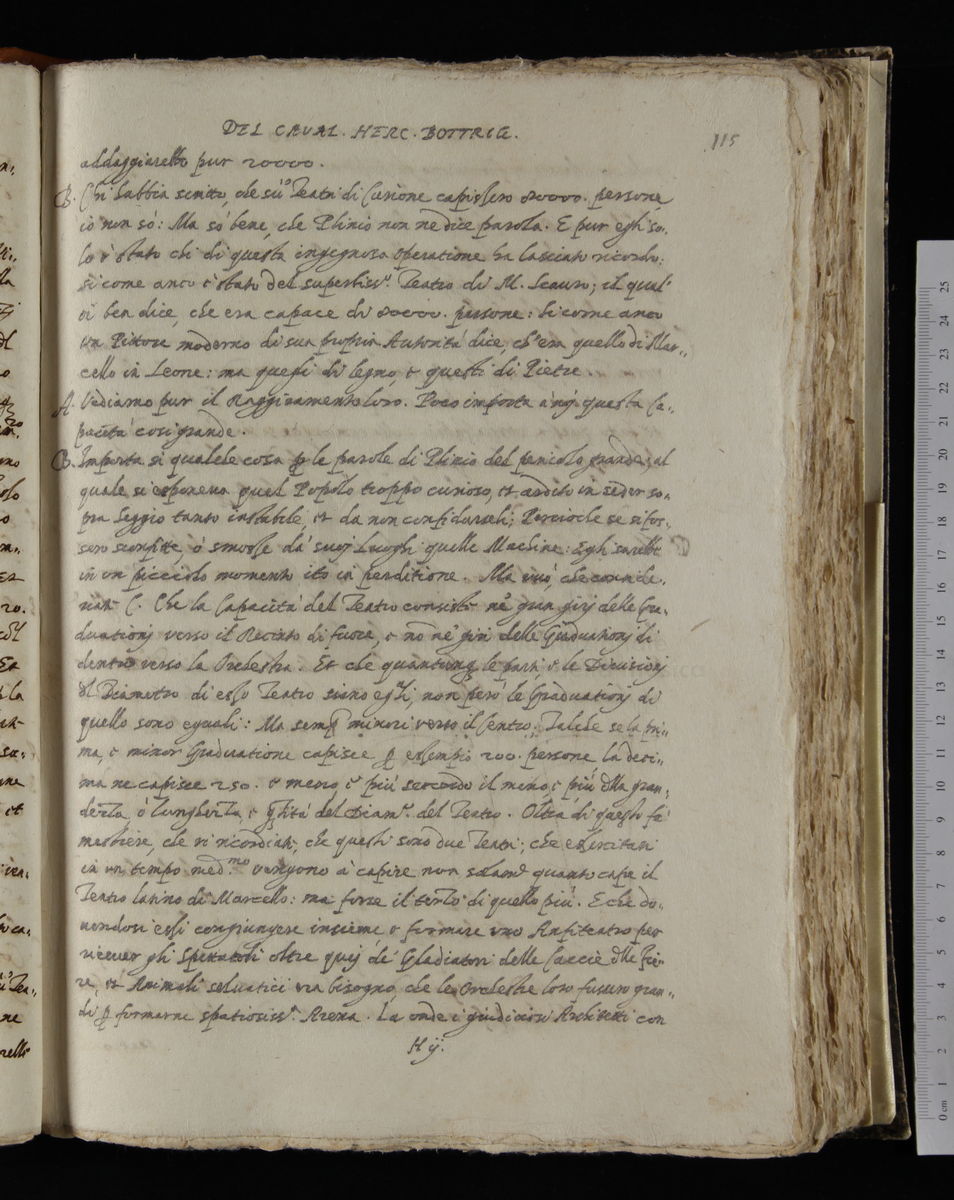 DEL CAVAL. HERC. BOTTRIG.
115
addaggiarebbo pur 20000.
B. Chi habbia scritto, che sù i Teatri di Curione capissero 80000. persone
io non sò: Ma sò bene, che Plinio non ne dice parola. E pur egli so-
lo è stato chi di questa ingegnosa operatione ha lasciato ricordo:
si come anco è stato del superbiss.º Teatro di M. Scauro; il qual'
ei ben dice, che era capace di 80000. persone: Si come anco
un Pittore moderno di sua propria Autorità dice, ch'era quello di Mar-
cello in Leone: ma quegli di legno, e questi di Pietre.
A. Vediamo pur il Raggiramento loro. Poco importa a noi questa Ca-
pacità così grande.
B. Importa sì qualche cosa p le parole di Plinio del pericolo grande, al
quale si esponeva quel Popolo troppo curioso, et ardito in seder so-
pra Seggio tanto instabile, et da non confidarseli; Percioche se si fos-
sero sconfitte, ò smosse dà suoi Luoghi quelle Machine: Egli sarebbe
in un picciolo momento ito in perditione. Ma
C. Che la Capacità del Teatro consiste nè gran giri delle Gra-
duationi verso il Recinto di fuore, e nò nè giri delle Graduationi di
dentro verso la Orchestra. Et che quantunq le parti, e le Divisioni
dl Diametro di esso Teatro siano eguali, non però le Graduationi di
quello sono eguali: Ma semp minori verso il Centro; Talche se la pri-
ma, e minor Graduatione capisce p essempio 200. persone la deci-
ma ne capisce 250. e meno e più secondo il meno, e più dlla gran-
dezza, ò lunghezza, e qtità del Diam.º del Teatro. Oltra di questo fà
mestiere, che vi ricordiate, che questi sono due Teatri; che essercitati
in un tempo med.mo vengono à capire non solam.e quanto cape il
Teatro latino di Marcello: ma forse il terzo di quello più. E che do-
vendosi essi congiungere insieme e formare uno Anfiteatro per
ricever gli Spettatori oltre quei dè Gladiatori delle Caccie dlle Fie-
re, et Animali selvatici era bisogno, che le Orchestre loro fussero gran-
di p formarne spatiosiss.ª Arena. La onde i giudiciosi Architetti con
H ij.